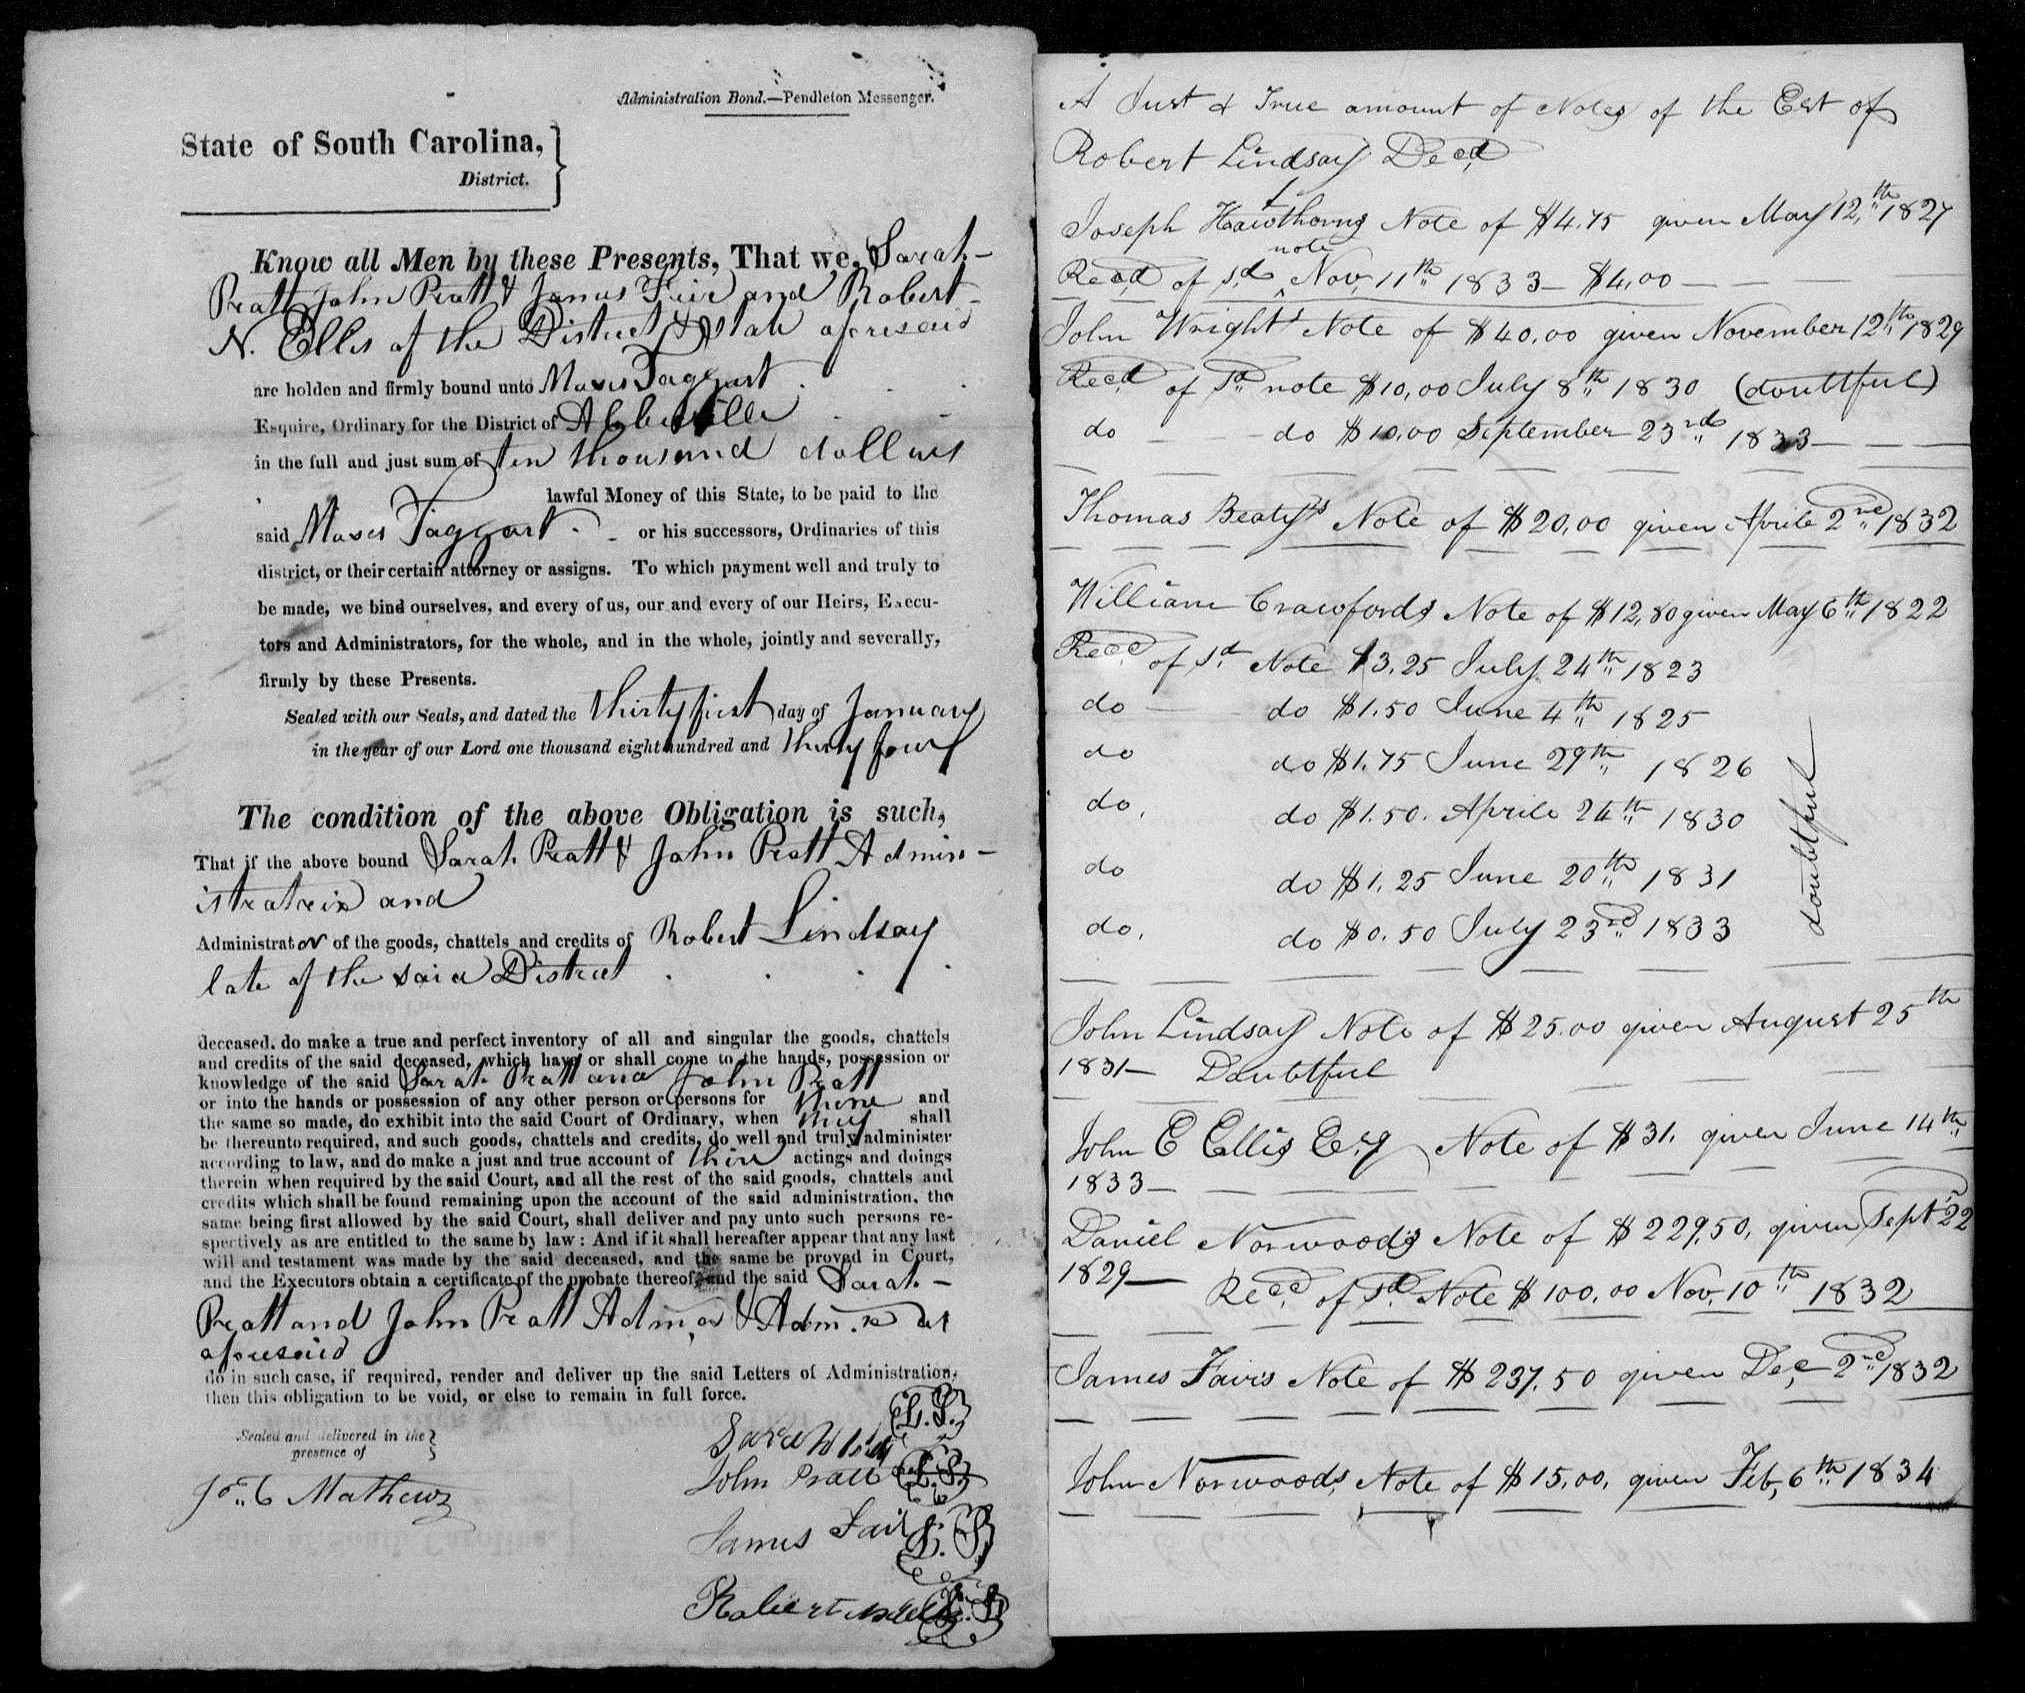 Administration Bond.—Pendleton Messenger.
State of South Carolina,
District.
Know all Men by these Presents, That we, Sarah
Pratt John Pratt & James Fair and Robert
N. Ellis of the District & State aforesaid
are holden and firmly bound unto Moses Taggart
Esquire, Ordinary for the District of Abbeville
in the full and just sum of ten thousand dollars
lawful Money of this State, to be paid to the
said Moses Taggart or his successors, Ordinaries of this
district, or their certain attorney or assigns. To which payment well and truly to
be made, we bind ourselves, and every of us, our and every of our Heirs, Execu-
tors and Administrators, for the whole, and in the whole, jointly and severally,
firmly by these Presents.
Sealed with our Seals, and dated the thirty first day of January
in the year of our Lord one thousand eight hundred and thirty four
The condition of the above Obligation is such,
That if the above bound Sarah Pratt & John Pratt Admin-
istratrix and
Administrator of the goods, chattels and credits of Robert Lindsay
late of the said District
deceased. do make a true and perfect inventory of all and singular the goods, chattels
and credits of the said deceased, which have or shall come to the hands, possession or
knowledge of the said Sarah Pratt and John Pratt
or into the hands or possession of any other person or persons for them and
the same so made, do exhibit into the said Court of Ordinary, when they shall
be thereunto required, and such goods, chattels and credits, do well and truly administer
according to law, and do make a just and true account of their actings and doings
therein when required by the said Court, and all the rest of the said goods, chattels and
credits which shall be found remaining upon the account of the said administration, the
same being first allowed by the said Court, shall deliver and pay unto such persons re-
spectively as are entitled to the same by law: And if it shall hereafter appear that any last
will and testament was made by the said deceased, and the same be proved in Court,
and the Executors obtain a certificate of the probate thereof, and the said Sarah
Pratt and John Pratt Admor & Adm.x as
aforesaid
do in such case, if required, render and deliver up the said Letters of Administration,
then this obligation to be void, or else to remain in full force.
Sealed and delivered in the
presence of
Jos. C Mathews
L.S.
John Pratt L.S.
James Fair L.S.
Robert N Ellis L.S.
A Just & True amount of Notes of the Est of
Robert Lindsay Decd
Joseph Hawthorns Note of $4.75 given May 12,th 1827
Recd of sd note Nov, 11th 1833 – $4,00
John Wright's Note of $40,00 given November 12th 1829
Recd of sd note $10,00 July 8th 1830 (doubtful)
do do $10,00 September 23rd 1833
Thomas Beaty's Note of $20,00 given Aprile 2nd 1832
William Crawfords Note of $12,80 given May 6th 1822
Recd of sd Note $3.25 July 24th 1823
do do $1.50 June 4th 1825
do do $1.75 June 29th 1826
do, do $1.50. Aprile 24th 1830
do do $1.25 June 20th 1831
do, do $0.50 July 23rd 1833
doubtful
John Lindsay Note of $25.00 given August 25th
1831– Doubtful
John E Ellis Esq Note of $31. given June 14th
1833–
Daniel Norwoods Note of $229.50, given Sept 22
1829— Recd of sd Note $100,00 Nov, 10th 1832
James Fairs Note of $237.50 given Dec, 2nd 1832
John Norwoods, Note of $15,00, given Feb, 6th 1834